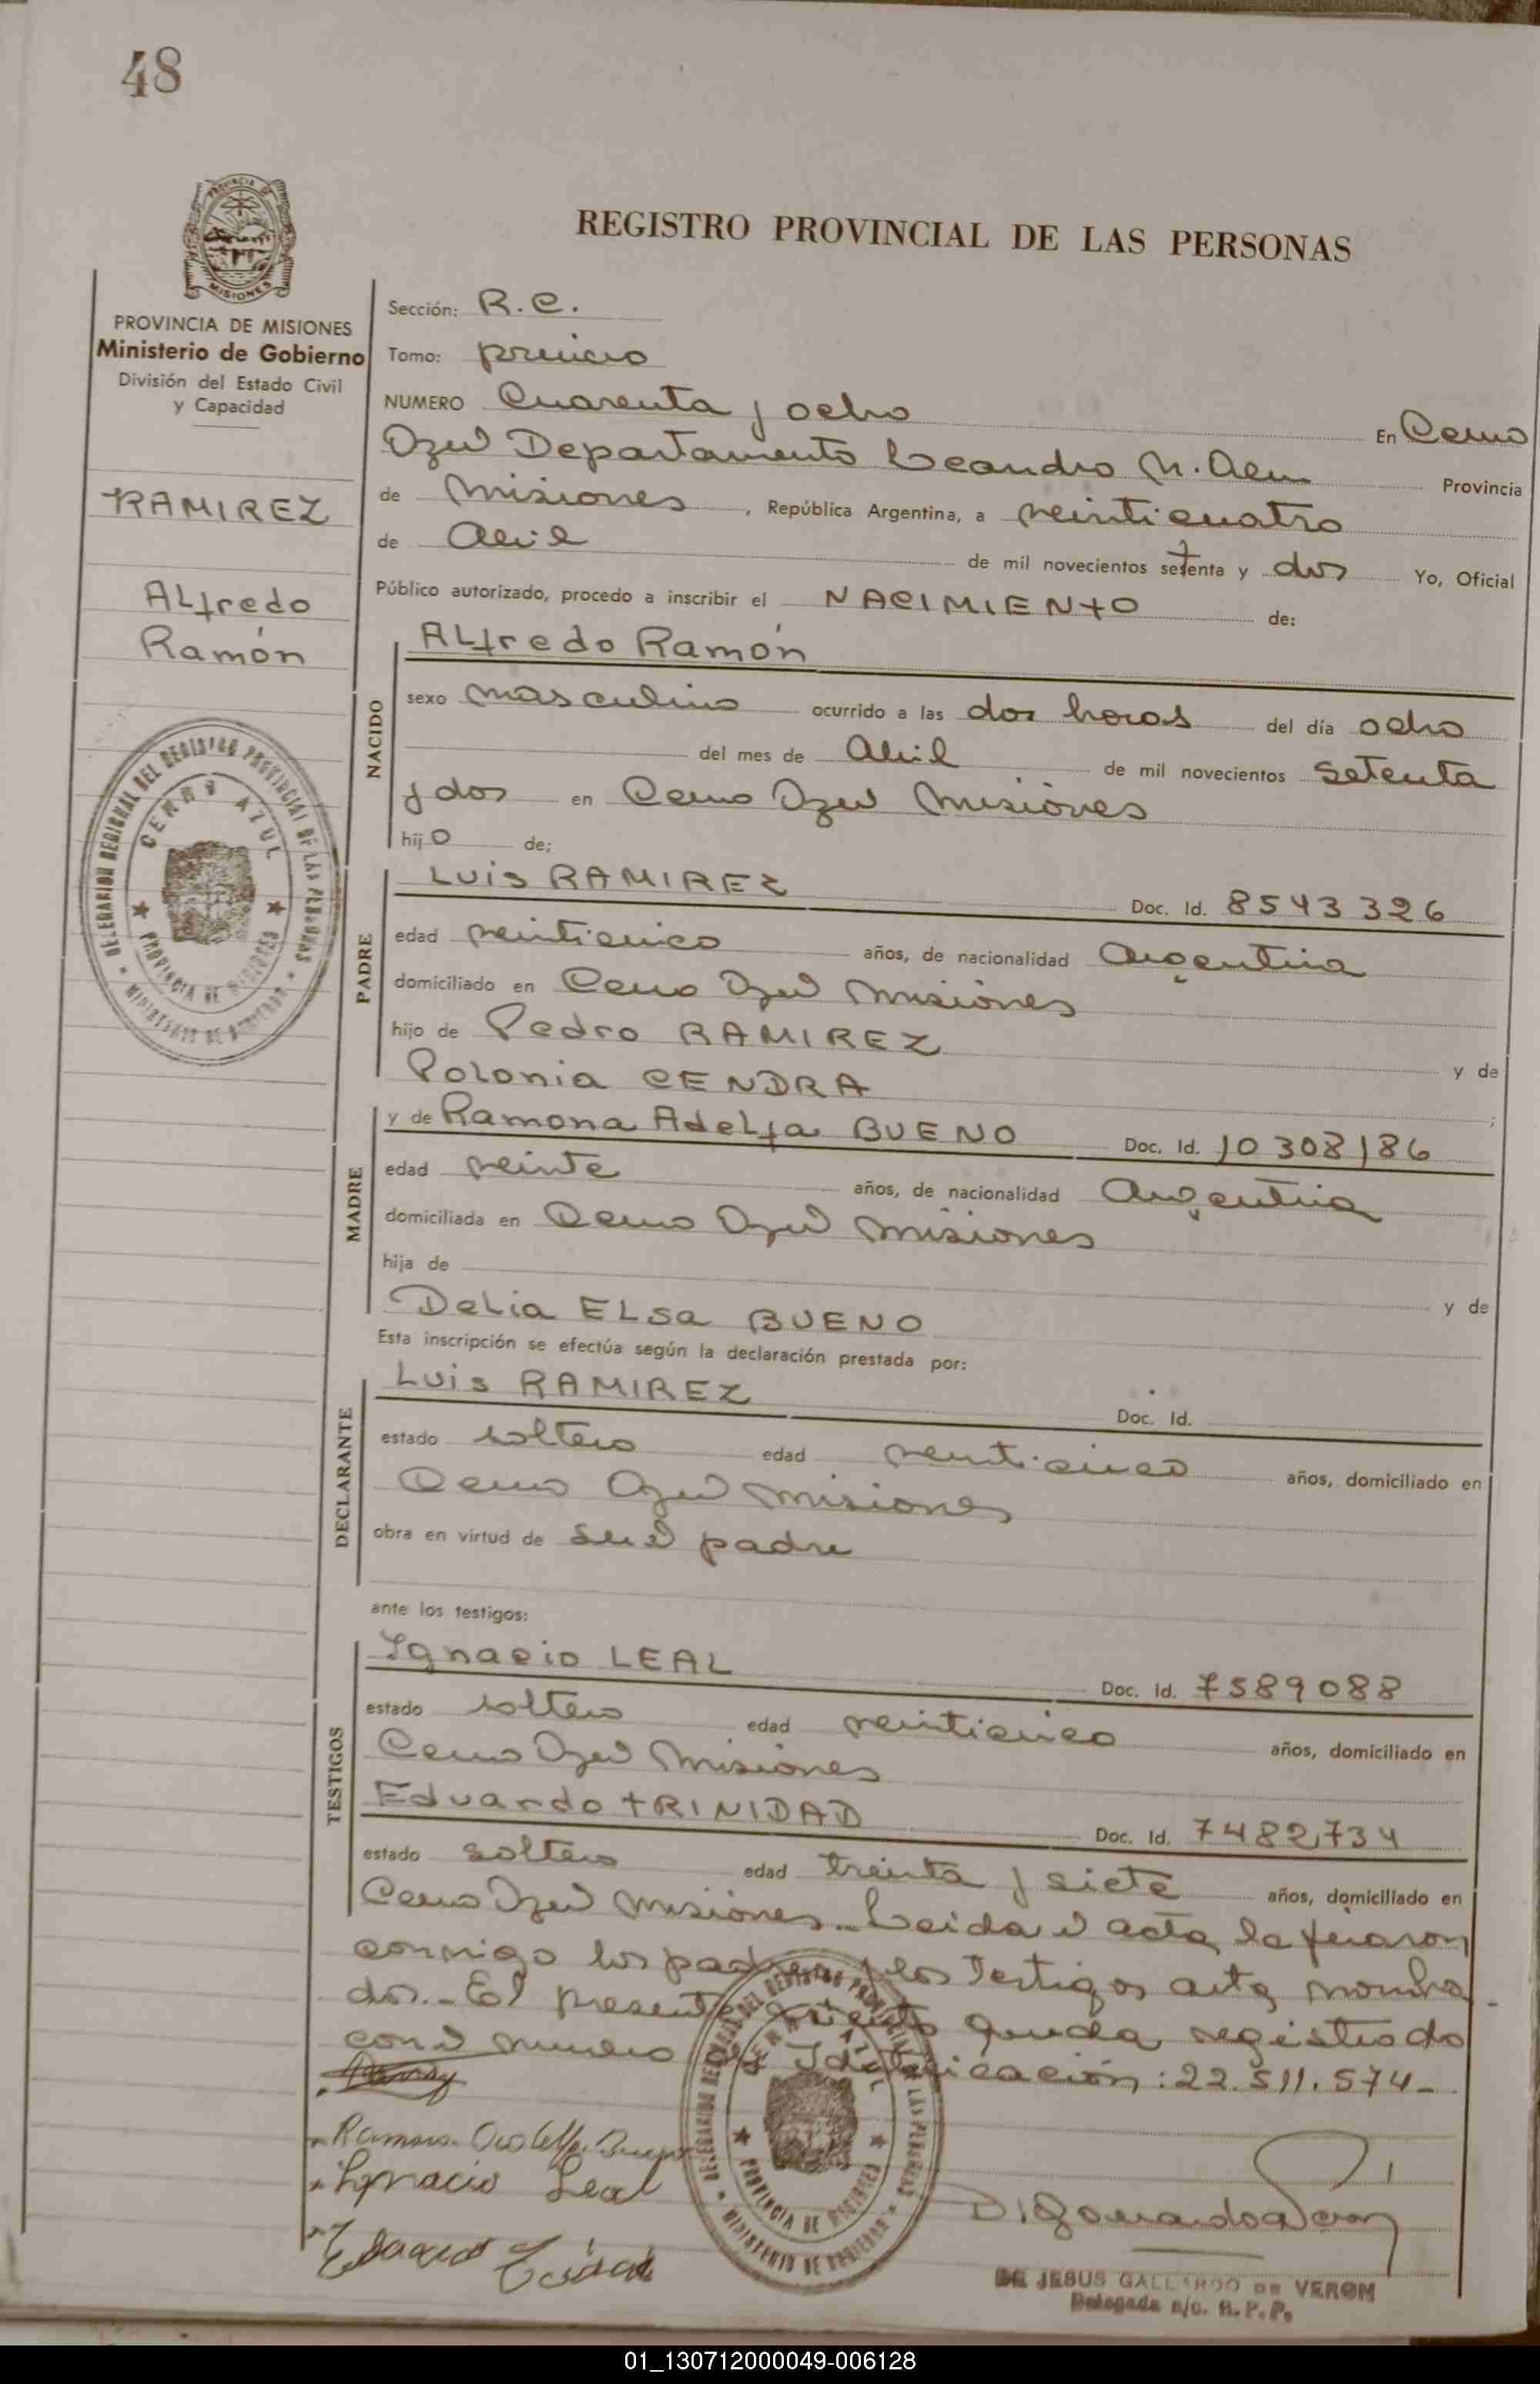 48
PROVINCIA DE
MISIONES
REGISTRO PROVINCIAL DE LAS PERSONAS
PROVINCIA DE MISIONES
Ministerio de Gobierno
División del Estado Civil
y Capacidad
RAMIREZ
Alfredo
Ramón
DELEGACION REGIONAL DEL REGISTRO PROVINCIAL DE LAS PERSONAS
CERRO AZUL
PROVINCIA DE MISIONES
MINISTERIO DE GOBIERNO
Sección: R.C.
Tomo: primero
NUMERO Cuarenta y ocho En Cerro
Azul Departamento Leandro N. Alem Provincia
de Misiones, República Argentina, a veinticuatro
de Abril de mil novecientos setenta y dos Yo, Oficial
Público autorizado, procedo a inscribir el NACIMIENTO de:
NACIDO
Alfredo Ramón
sexo masculino ocurrido a las dos horas del día ocho
del mes de Abril de mil novecientos setenta
y dos en Cerro Azul Misiones
hijo de:
PADRE
Luis RAMIREZ Doc. Id. 8543326
edad veinticinco años, de nacionalidad Argentina
domiciliado en Cerro Azul Misiones
hijo de Pedro RAMIREZ y de
Polonia CENDRA;
MADRE
y de Ramona Adelfa BUENO Doc. Id. 10308186
edad veinte años, de nacionalidad Argentina
domiciliada en Cerro Azul Misiones
hija de y de
Delia Elsa BUENO
Esta inscripción se efectúa según la declaración prestada por:
DECLARANTE
Luis RAMIREZ Doc. Id.
estado soltero edad veinticinco años, domiciliado en
Cerro Azul Misiones
obra en virtud de ser el padre
ante los testigos:
TESTIGOS
Ignacio LEAL Doc. Id. 7589088
estado soltero edad veinticinco años, domiciliado en
Cerro Azul Misiones
Eduardo TRINIDAD Doc. Id. 7482,734
estado soltero edad treinta y siete años, domiciliado en
Cerro Azul Misiones._ Leida el acta, la firaron
conmigo los padres y los testigos arta nombra
dos._ El presente asiento queda registrado
con el numero de Identificación: 22.511.574_
Ramona Bueno
Ignacio Leal
DELEGACION REGIONAL DEL REGISTRO PROVINCIAL DE LAS PERSONAS
CERRO AZUL
PROVINCIA DE MISIONES
MINISTERIO DE GOBIERNO
DE JESUS GALLARDO DE VERON
Delegada a/c. R.P.P.
01_130712000049-006128